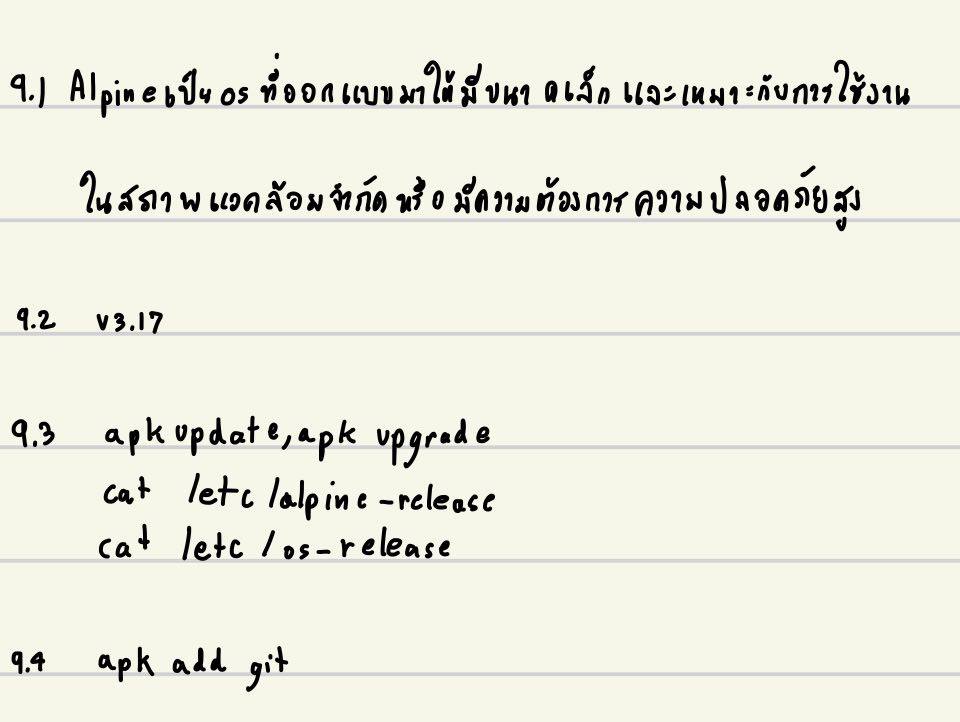 9.1 Alpineเป็น os ที่ออกแบบมาให้มีขนาดเล็ก และเหมาะกับการใช้งาน
ในสภาพแวดล้อมจำกัด หรือ มีความต้องการความปลอดภัยสูง
9.2 v3.17
9.3 apk update, apk upgrade
cat /etc/alpine-release
cat /etc/os-release
9.4 apk add git